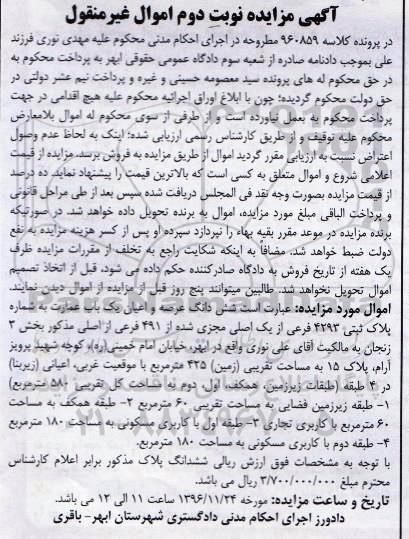 آگهی مزایده نوبت دوم اموال غیرمنقول
در پرونده کلاسه ۹۶۰۸۵۹ مطروحه در اجرای احکام مدنی محکوم علیه مهدی نوری فرزند
علی بموجب دادنامه صادره از شعبه سوم دادگاه عمومی حقوقی ابهر به پرداخت محکوم به
در حق محکوم له های پرونده سید معصومه حسینی و غیره و پرداخت نیم عشر دولتی در
حق دولت محکوم گردیده؛ چون با ابلاغ اوراق اجرائیه محکوم علیه هیچ اقدامی در جهت
پرداخت محکوم به بعمل نیاورده است و از طرفی از سوی محکوم له اموال بلامعارض
محکوم علیه توقیف و از طریق کارشناس رسمی ارزیابی شده؛ اینک به لحاظ عدم وصول
اعتراض نسبت به ارزیابی مقرر گردید اموال از طریق مزایده به فروش برسد. مزایده از قیمت
اعلامی شروع و اموال متعلق به کسی است که بالاترین قیمت را پیشنهاد نماید. ده درصد
از قیمت مزایده بصورت وجه نقد فی المجلس دریافت شده سپس بعد از طی مراحل قانونی
و پرداخت الباقی مبلغ مورد مزایده، اموال به برنده تحویل داده خواهد شد. در صورتیکه
برنده مزایده در موعد مقرر بقیه بهاء را نپردازد سپرده او پس از کسر هزینه مزایده به نفع
دولت ضبط خواهد شد. مضافاً به اینکه شکایت راجع به تخلف از مقررات مزایده ظرف
یک هفته از تاریخ فروش به دادگاه صادرکننده حکم داده می شود، قبل از اتخاذ تصمیم
اموال تحویل نخواهد شد. طالبین میتوانند پنج روز قبل از مزایده از اموال دیدن نمایند.
اموال مورد مزایده: عبارت است شش دانگ عرصه و اعیان یک باب عمارت به شماره
پلاک ثبتی ۴۲۹۳ فرعی از یک اصلی مجزی شده از ۴۹۱ فرعی از اصلی مذکور بخش ۳
زنجان به مالکیت آقای علی نوری واقع در ابهر، خیابان امام خمینی(ره)، کوچه شهید پرویز
آرام، پلاک ۱۵ به مساحت تقریبی (زمین) ۴۲۵ مترمربع با موقعیت غربی، اعیانی (زیربنا)
در ۴ طبقه (طبقات زیرزمین، همکف، اول، دوم به مساحت کل تقریبی ۵۸۰ مترمربع)
۱- طبقه زیرزمین فضایی به مساحت تقریبی ۶۰ مترمربع ۲- طبقه همکف به مساحت
۶۰ مترمربع با کاربری تجاری ۳- طبقه اول با کاربری مسکونی به مساحت ۱۸۰ مترمربع
۴- طبقه دوم با کاربری مسکونی به مساحت ۱۸۰ مترمربع.
با توجه به مشخصات فوق ارزش ریالی ششدانگ پلاک مذکور برابر اعلام کارشناس
محترم مبلغ ۳/۷۰۰/۰۰۰/۰۰۰ ریال می باشد.
تاریخ و ساعت مزایده: مورخه ۱۳۹۶/۱۱/۲۴ ساعت ۱۱ الی ۱۲ می باشد.
دادورز اجرای احکام مدنی دادگستری شهرستان ابهر- باقری